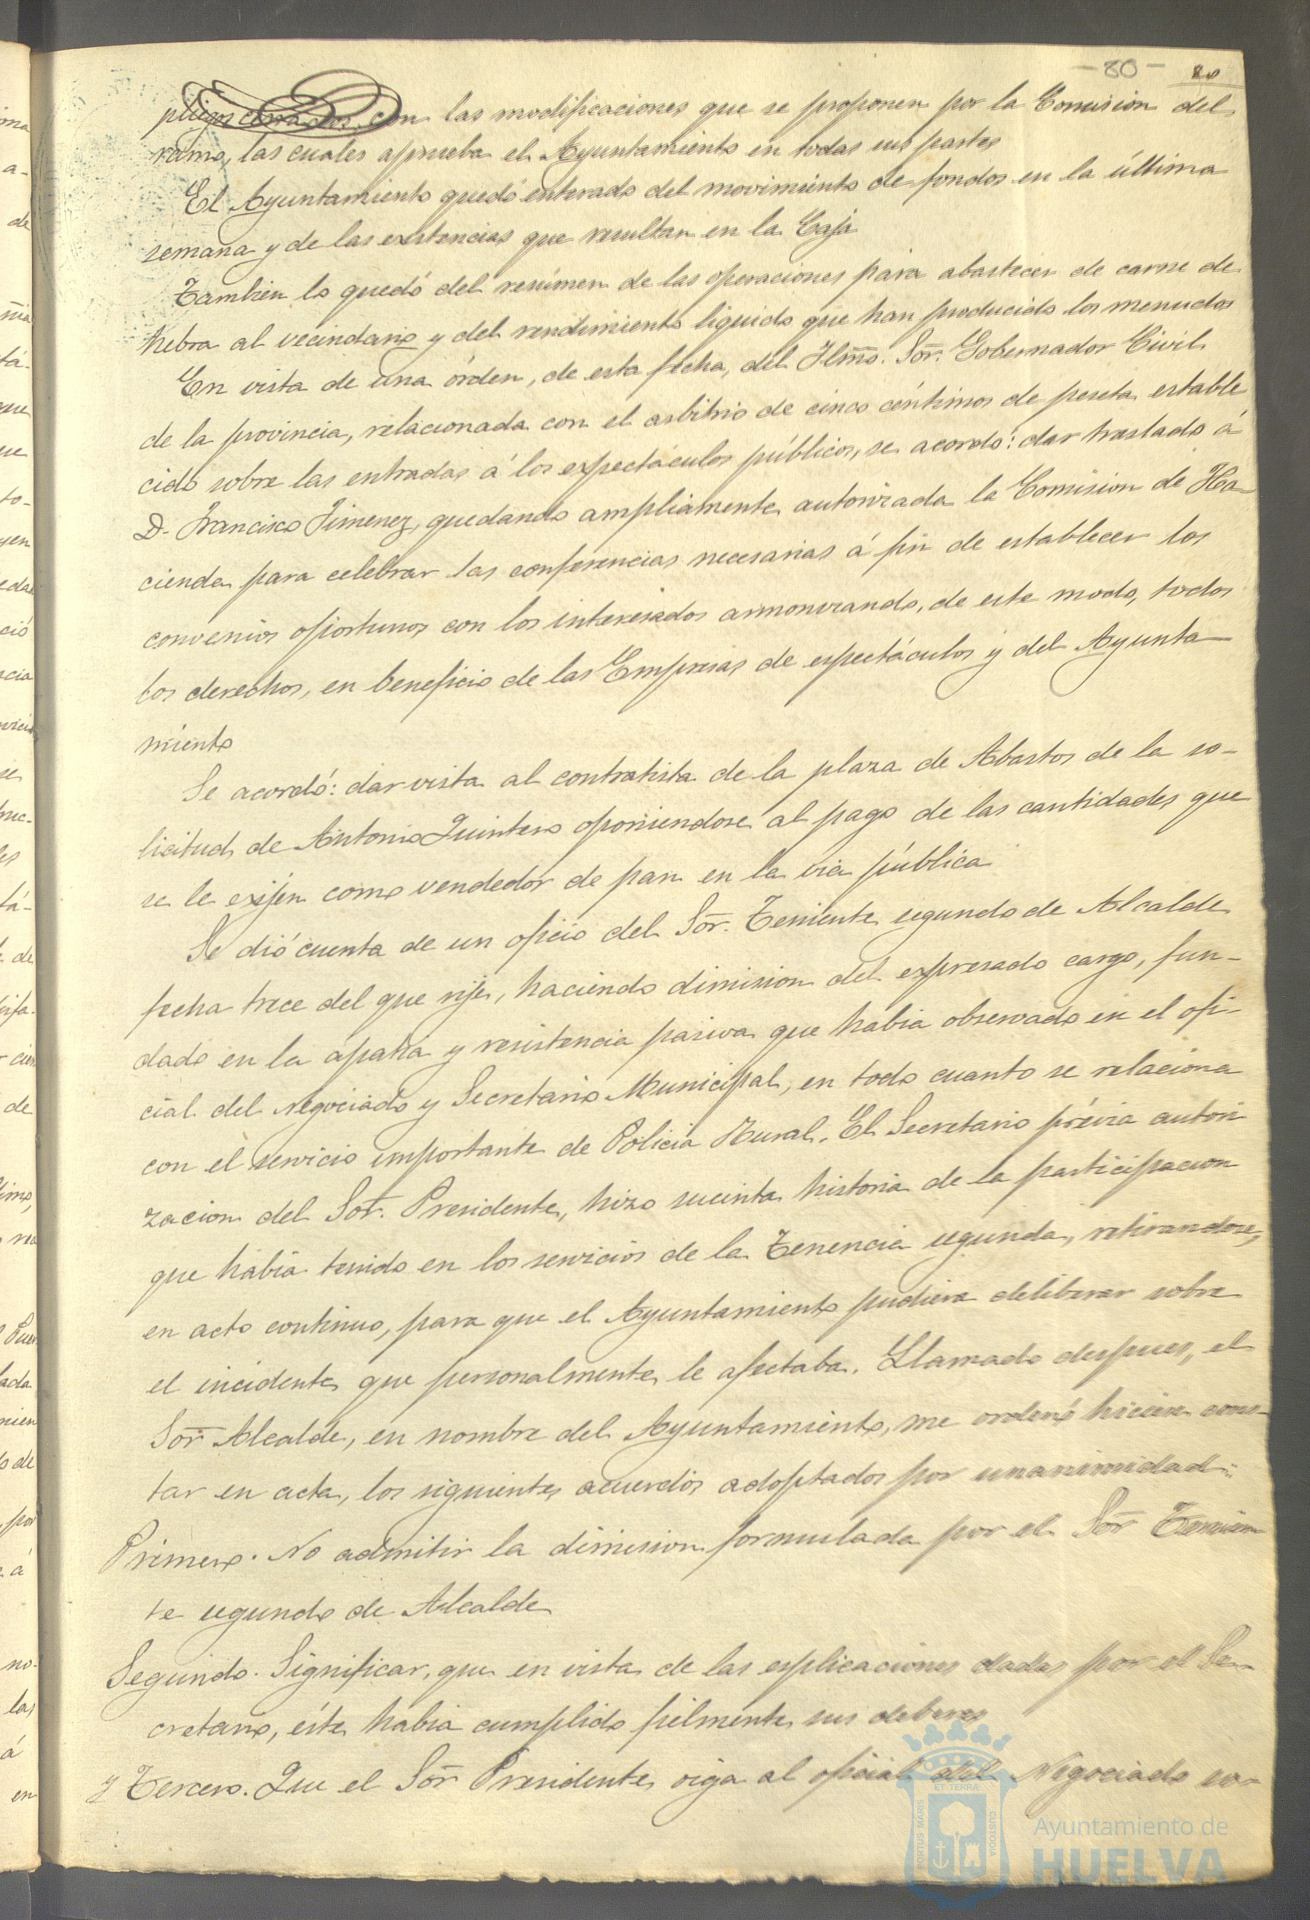 -80- 80
pliegos cerrados, con las modificaciones que se proponen por la Comision del
ramo, las cuales aprueba el Ayuntamiento en todas sus partes
El Ayuntamiento quedó enterado del movimiento de fondos en la última
semana y de las existencias que resultan en la Caja
Tambien lo quedó del resúmen de las operaciones para abastecer de carne de
hebra al vecindario y del rendimiento líquido que han producido los menudos
En vista de una órden, de esta fecha, del Ilmo. Sor. Gobernador Civil
de la provincia, relacionada con el arbitrio de cinco céntimos de peseta estable
cido sobre las entradas á los espectáculos públicos, se acordó: dar traslado á
D. Francisco Jimenez, quedando ampliamente autorizada la Comision de Ha-
cienda para celebrar las conferencias necesarias á fin de establecer los
convenios oportunos con los interesados armonizando, de este modo, todos
los derechos, en beneficio de las Empresas de espectáculos y del Ayunta-
miento
Se acordó: dar vista al contratista de la plaza de Abastos de la so-
licitud de Antonio Quintero oponiendose al pago de las cantidades que
se le exijen como vendedor de pan en la via pública
Se dió cuenta de un oficio del Sor. Teniente segundo de Alcalde
fecha trece del que rije, haciendo dimision del expresado cargo, fun-
dado en la apatia y resistencia pasiva que habia observado en el ofi-
cial del Negociado y Secretario Municipal, en todo cuanto se relaciona
con el servicio importante de Policia Rural. El Secretario prévia autori
zacion del Sor. Presidente, hizo sucinta historia de la participacion
que habia tenido en los servicios de la Tenencia segunda, retirandose,
en acto continuo, para que el Ayuntamiento pudiera deliberar sobre
el incidente que personalmente le afectaba. Llamado despues, el
Sor Alcalde, en nombre del Ayuntamiento, me ordenó hiciera cons-
tar en acta, los siguientes acuerdos adoptados por unanimidad:
Primero. No admitir la dimision formulada por el Sor Tenien
te segundo de Alcalde
Segundo. Significar, que en vista de las esplicaciones dadas por el Se-
cretario, éste habia cumplido fielmente sus deberes
y Tercero. Que el Sor Presidente oiga al oficial del Negociado so-
PORTUS MARIS ET TERRÆ CUSTODIA
Ayuntamiento de
HUELVA